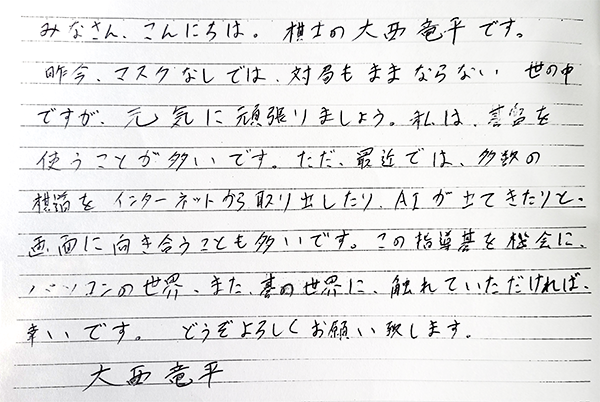 みなさん、こんにちは。棋士の大西竜平です。
昨今、マスクなしでは、対局もままならない 世の中
ですが、元気に頑張りましょう。私は、碁盤を
使うことが多いです。ただ、最近では、多数の
棋譜を インターネットから取り出したり、AIが出てきたりと、
画面に向き合うことも多いです。この指導碁を機会に、
パソコンの世界、また、碁の世界に、触れていただければ、
幸いです。 どうぞよろしくお願い致します。
大西竜平